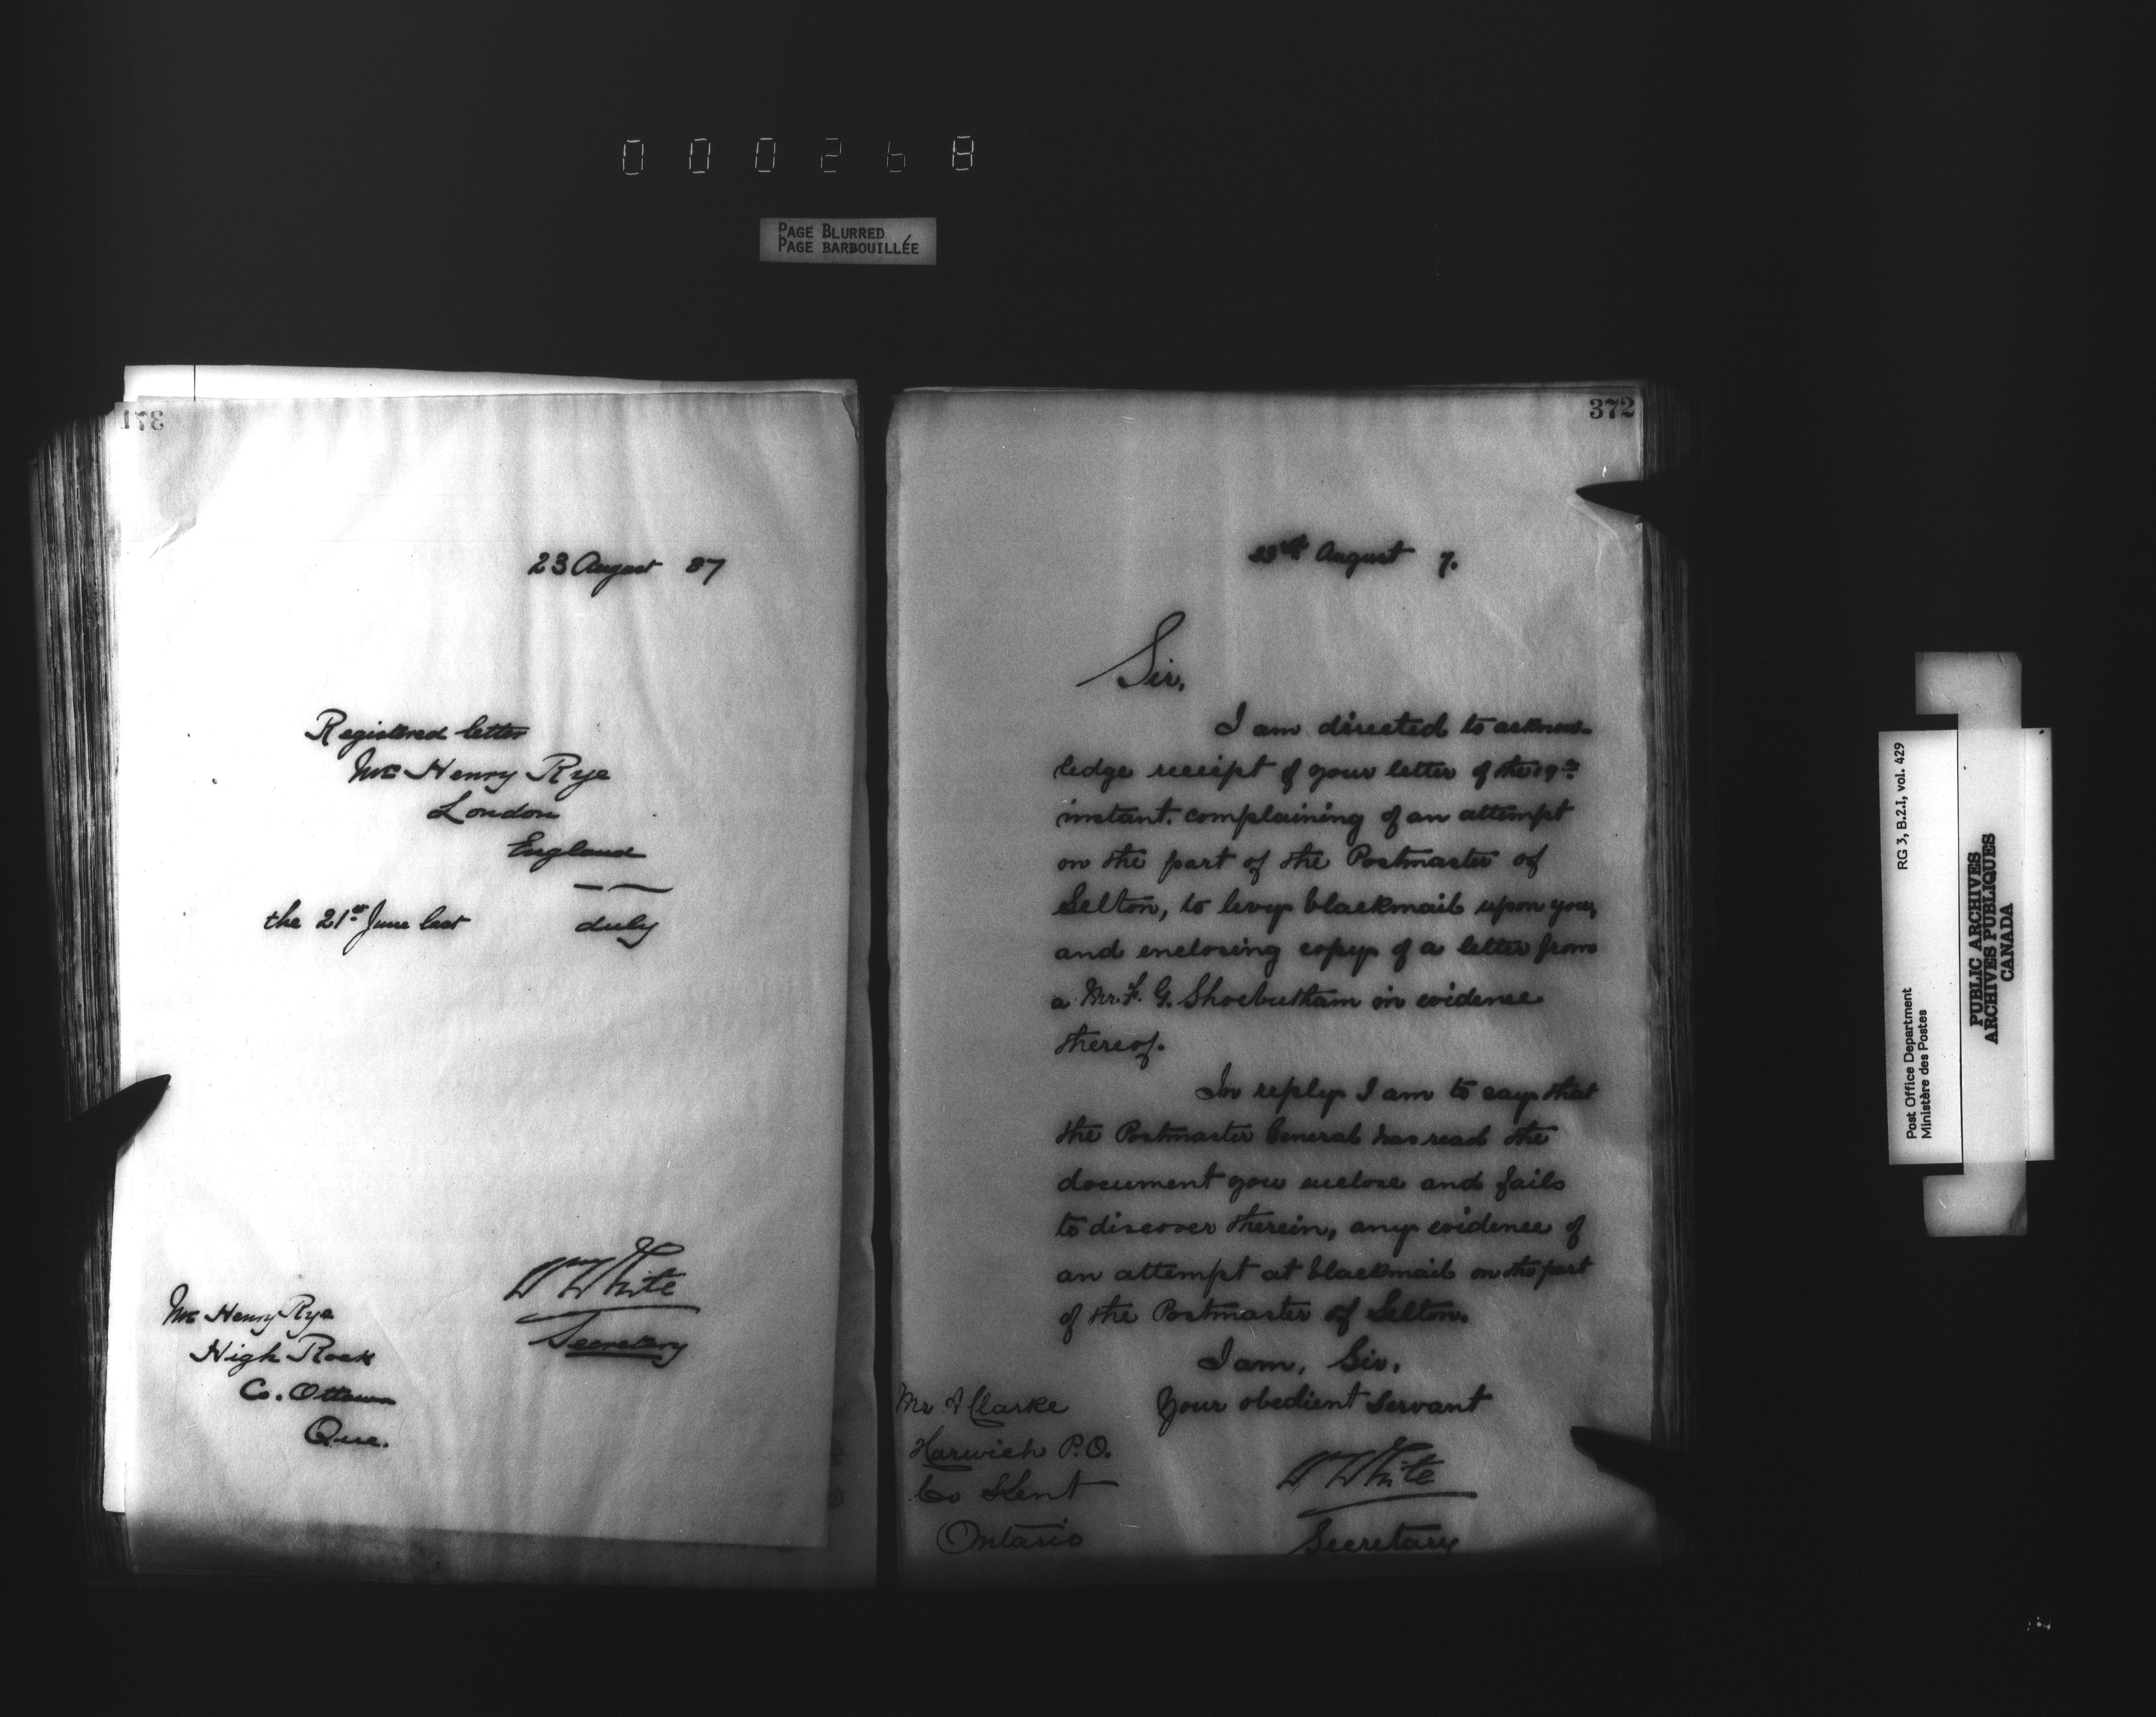 000268
PAGE BLURRED
PAGE BARBOUILLÉE
371
23 August 87
Registered letter
Mr Henry Rye
London
England
the 21st June last duly
WmWhite
Secretary
Mr Henry Rye
High Rock
Co. Ottawa
Que.
372
August 7.
Sir,
I am directed to acknow-
ledge receipt of your letter of the 19th
instant, complaining of an attempt
on the part of the Postmaster of
Selton, to levy blackmail upon you,
and enclosing copy of a letter from
a Mr. F. G. Shoebutham in evidence
thereof.
In reply I am to say that
the Postmaster General has read the
document you enclose and fails
to discover therein, any evidence of
an attempt at blackmail on the part
of the Postmaster of Selton.
I am, Sir,
Your obedient Servant
Mr A Clarke
Harwich P.O.
Co Kent
Ontario
WWhite
Secretary
RG 3, B.2.I, vol. 429
Post Office Department
Ministère des Postes
PUBLIC ARCHIVES
ARCHIVES PUBLIQUES
CANADA